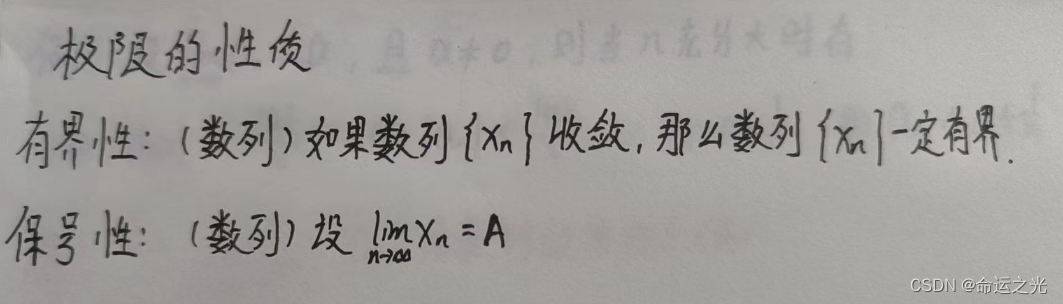 极限的性质
有界性:(数列)如果数列{xn}收敛,那么数列{xn}一定有界.
保号性:(数列)设 lim n→∞ xn = A
CSDN @命运之光